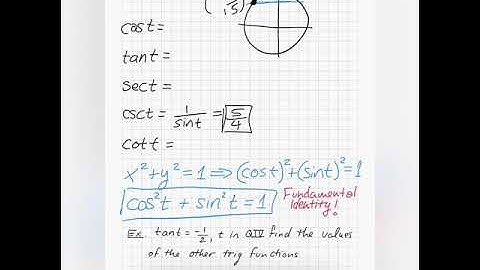 cost =
tant =
sect =
csct = 1/sint = 5/4
cott =
x²+y²=1 ⇒ (cost)²+(sint)²=1
cos²t + sin²t = 1
Fundamental
identity!
Ex. tant = -1/2, t in QIV find the values
of the other trig functions